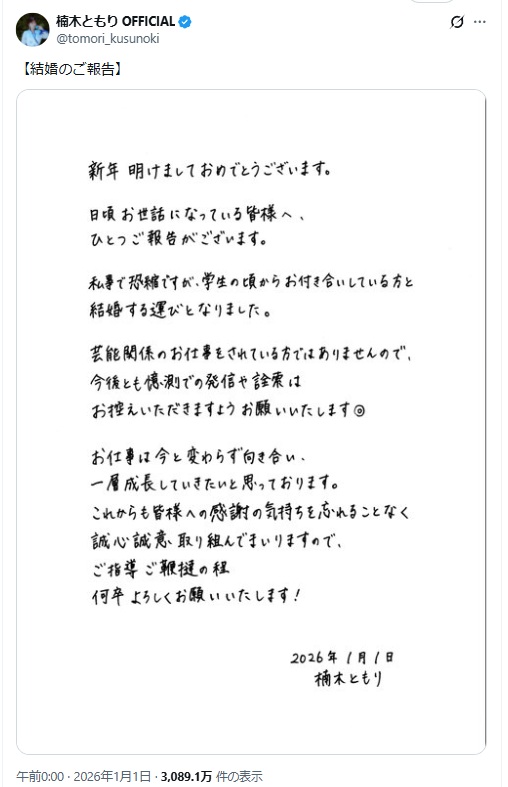 楠木ともり OFFICIAL
@tomori_kusunoki
【結婚のご報告】
新年 明けましておめでとうございます。
日頃 お世話になっている皆様へ、
ひとつご報告がございます。
私事で恐縮ですが、学生の頃からお付き合いしている方と
結婚する運びとなりました。
芸能関係のお仕事をされている方ではありませんので、
今後とも憶測での発信や詮索は
お控えいただきますようお願いいたします◎
お仕事は今と変わらず向き合い、
一層成長していきたいと思っております。
これからも皆様への感謝の気持ちを忘れることなく
誠心誠意、取り組んでまいりますので、
ご指導ご鞭撻の程
何卒よろしくお願いいたします!
2026年 1月1日
楠木ともり
午前0:00 · 2026年1月1日 · 3,089.1万 件の表示